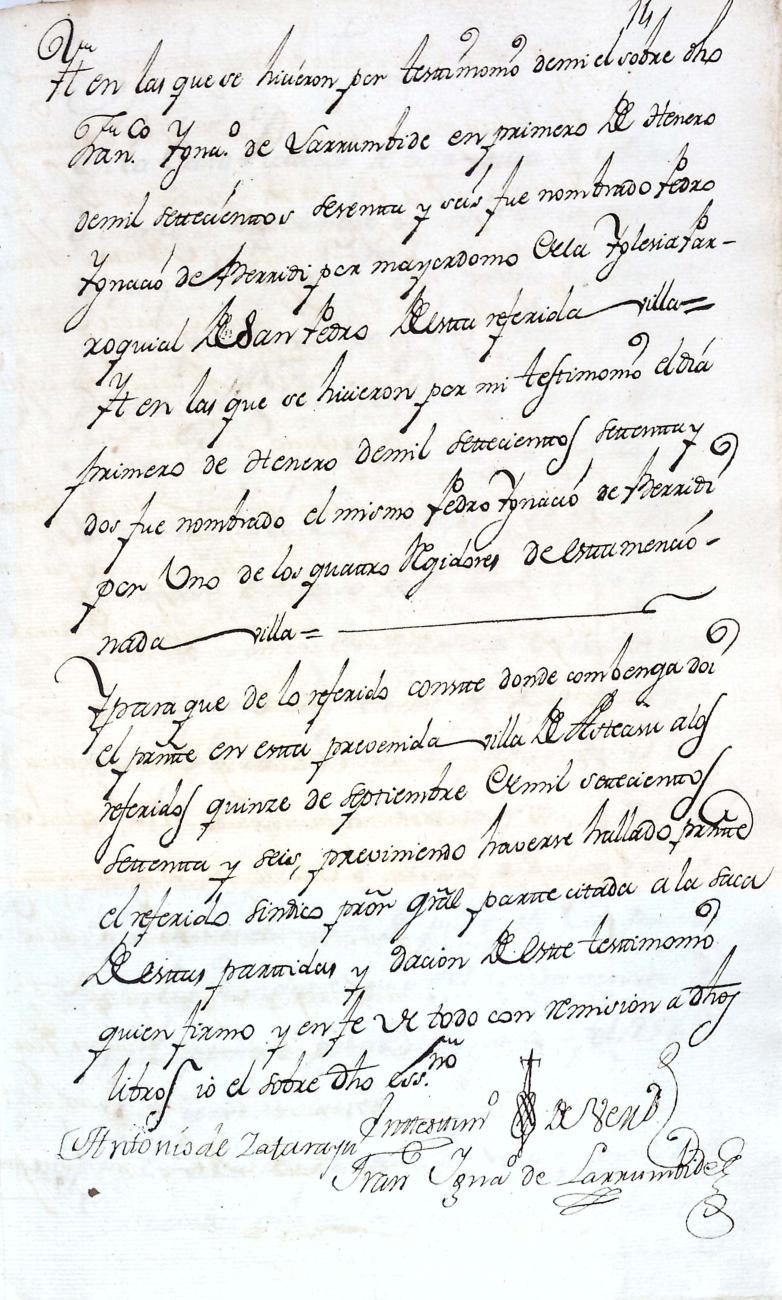 14
Yt en las que se hicieron por testimonio demi el sobre dho
Fran.co Ygna.o de Larrumbide en primero De Henero
demil settecientos sesenta y seis fue nombrado Pedro
Ygnacio de Berridi por mayordomo Dela Yglesia Par-
roquial De San Pedro De esta referida villa=
Yt en las que se hicieron por mi testimonio el dia
primero de Henero demil settecientos settenta y
dos fue nombrado el mismo Pedro Ygnacio de Berridi
por Uno de los quattro Regidores de esta mencio-
nada villa=
Y para que de lo referido conste donde combenga doi
el prnte en esta prevenida villa De Asteasu a los
referidos quinze de septiembre Demil settecientos
settenta y seis, previniendo haverse hallado prnte
el referido sindico pror gral parte citada a la saca
De estas partidas y dacion De este testimonio
quien firmo y en fe de todo con remision a dhos
libros io el sobre dho ess.no
In testim.o de Verd
Antonio de Zatarayn
Fran.co Ygna.o de Larrumbide